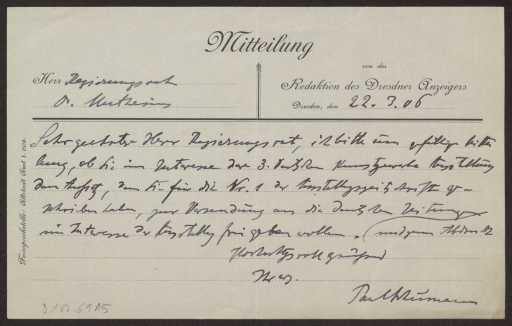 Mitteilung
von der
Herr Regierungsrat
Redaktion des Dresdner Anzeigers
Dr. Muthesius
Dresden, den 22. 3. 06
Sehr geehrter Herr Regierungsrat, ich bitte um gefällige Mittei
lung, ob Sie im Interesse der 3. deutschen Kunstgewerbe Ausstellung
den Aufsatz, den Sie für die Nr. 1 der Ausstellungszeitschrift ge-
schrieben haben, zur Versendung an die deutschen Zeitungen
im Interesse der Ausstellung freigeben wollen.
Hochachtungsvoll grüßend
Ihr erg.
Paul Schumann
Fernsprechstelle: Altstadt Amt I,
D 102-6985